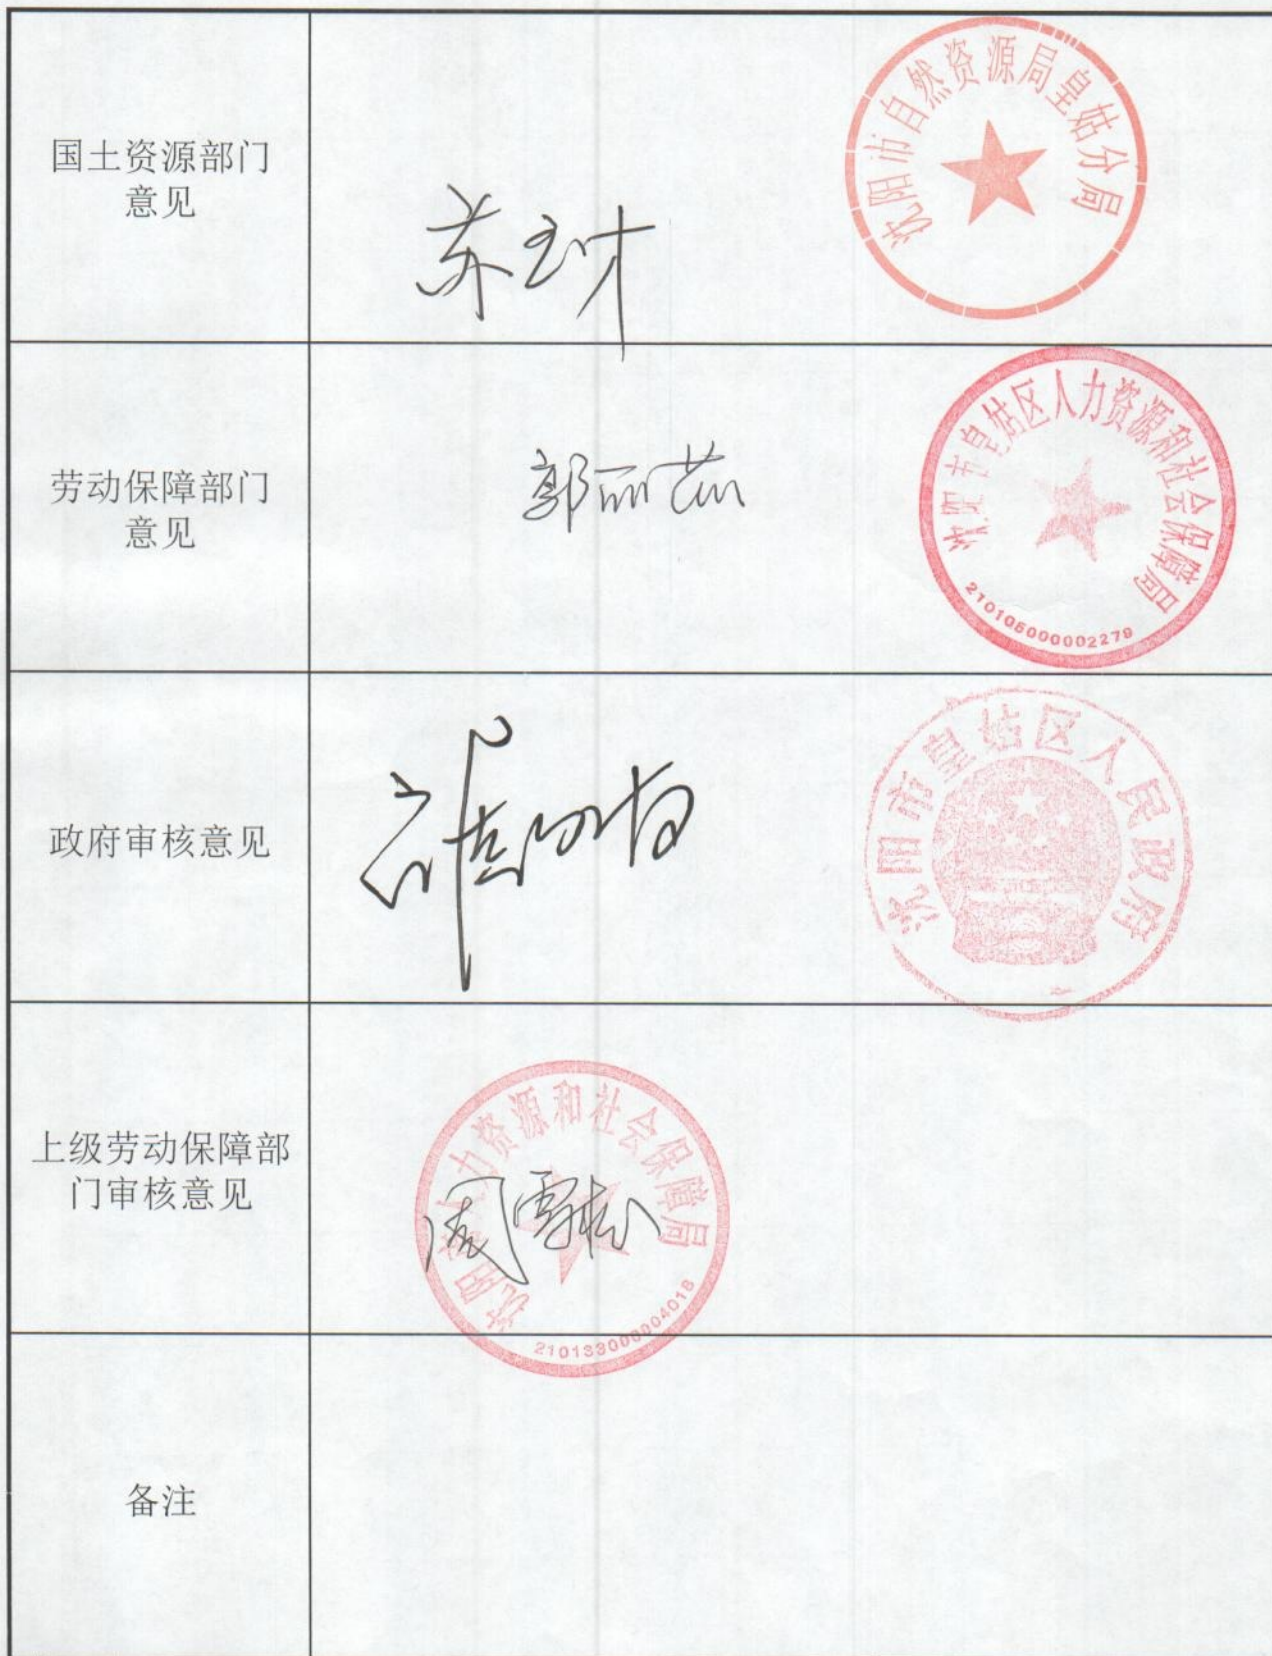 国土资源部门
意见
沈阳市自然资源局皇姑分局
劳动保障部门
意见
郭丽茹
沈阳市皇姑区人力资源和社会保障局
210105000002279
政府审核意见
沈阳市皇姑区人民政府
上级劳动保障部
门审核意见
沈阳市人力资源和社会保障局
周雪松
210133000004018
备注